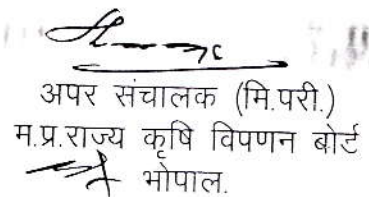 अपर संचालक (मि.परी.)
म.प्र.राज्य कृषि विपणन बोर्ट
भोपाल.